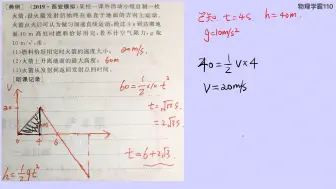 物理学霸110
(典例) (2019·西安模拟)某校一课外活动小组自制一枚
火箭,设火箭发射后始终在垂直于地面的方向上运动。
火箭点火后可认为做匀加速直线运动,经过4 s到达离地
面40 m高处时燃料恰好用完,若不计空气阻力,g取
10 m/s²,求:
(1)燃料恰好用完时火箭的速度大小; 20m/s
(2)火箭上升离地面的最大高度; 60m
(3)火箭从发射到返回发射点的时间。
[听课记录]
V
60=½×10t²
t=2√3s
4
6
t
t=6+2√3
h=½gt²
已知 t=4s h=40m
g=10m/s²
40=½V×4
V=20m/s